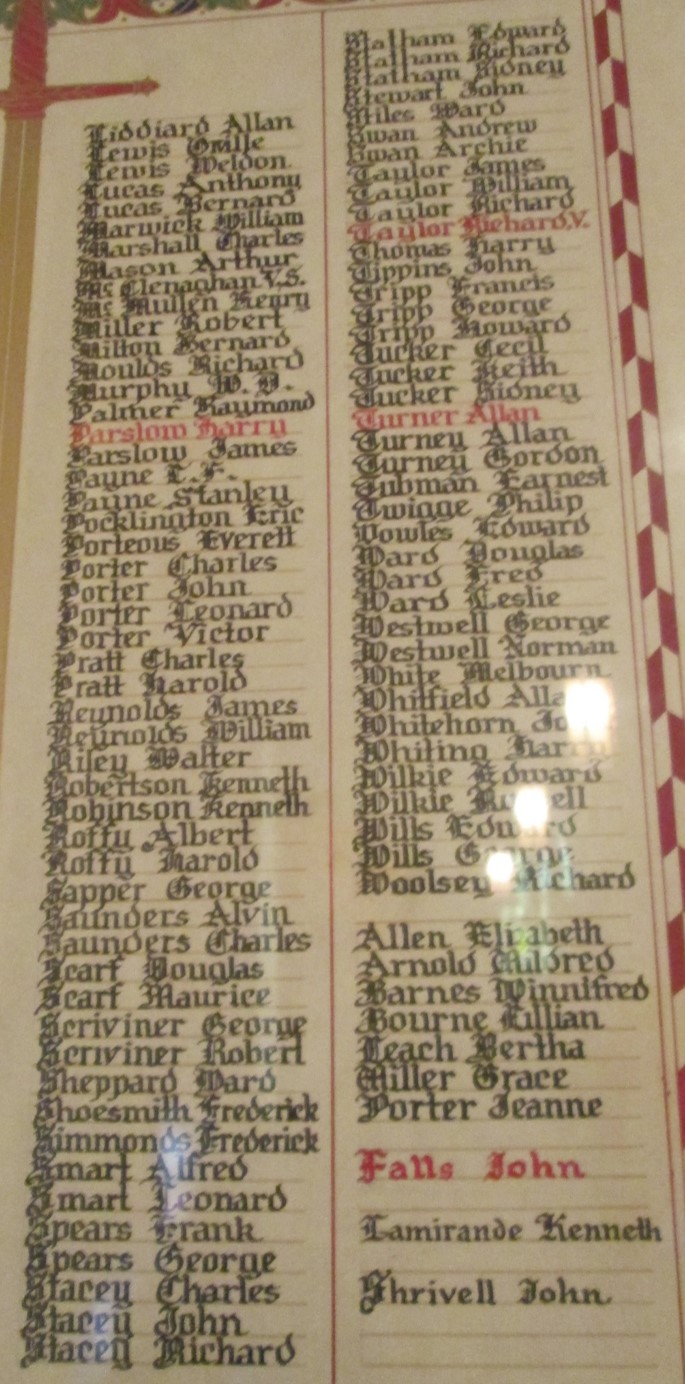 Liddiard Allan
Lewis Orille
Lewis Weldon
Lucas Anthony
Lucas Bernard
Marwick William
Marshall Charles
Mason Arthur
McClenaghan V.S.
McMullen Henry
Miller Robert
Milton Bernard
Moulds Richard
Murphy W. D.
Palmer Raymond
Parslow Harry
Parslow James
Payne E.F.
Payne Stanley
Pocklington Eric
Porteous Everett
Porter Charles
Porter John
Porter Leonard
Porter Victor
Pratt Charles
Pratt Harold
Reynolds James
Reynolds William
Riley Walter
Robertson Kenneth
Robinson Kenneth
Roffy Albert
Roffy Harold
Sapper George
Saunders Alvin
Saunders Charles
Scarf Douglas
Scarf Maurice
Scriviner George
Scriviner Robert
Sheppard Ward
Shoesmith Frederick
Simmonds Frederick
Smart Alfred
Smart Leonard
Spears Frank
Spears George
Stacey Charles
Stacey John
Stacey Richard
Statham Edward
Statham Richard
Statham Sidney
Stewart John
Stiles Ward
Swan Andrew
Swan Archie
Taylor James
Taylor William
Taylor Richard
Taylor Richard.V.
Thomas Harry
Tippins John
Tripp Francis
Tripp George
Tripp Howard
Tucker Cecil
Tucker Keith
Tucker Sidney
Turner Allan
Turney Allan
Turney Gordon
Tubman Earnest
Twigge Philip
Vowles Edward
Ward Douglas
Ward Fred
Ward Leslie
Westwell George
Westwell Norman
White Melbourn
Whitfield Allan
Whitehorn John
Whiting Harry
Wilkie Edward
Wilkie Russell
Wills Edward
Wills George
Woolsey Richard
Allen Elizabeth
Arnold Mildred
Barnes Winnifred
Bourne Lillian
Leach Bertha
Miller Grace
Porter Jeanne
Falls John
Lamirande Kenneth
Shrivell John